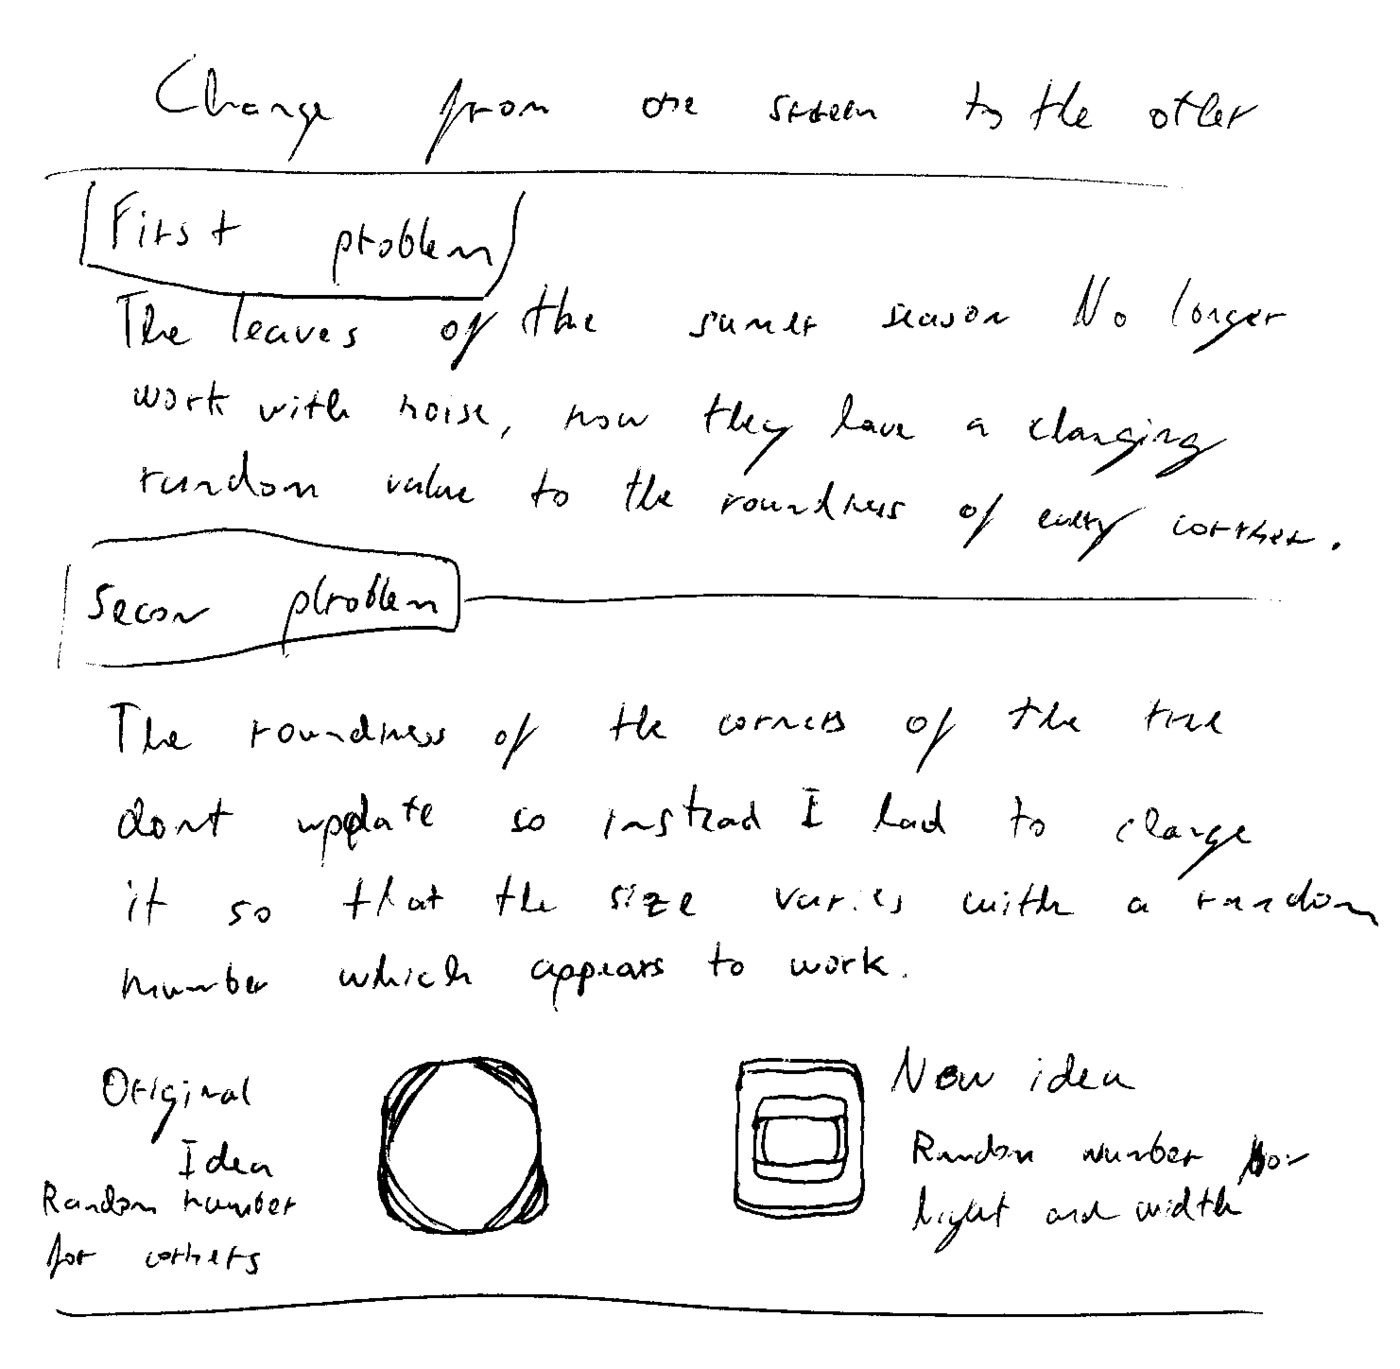 Change from one screen to the other
First problem
The leaves of the sumer season No longer
work with noise, now they have a changing
random value to the roundness of every corner.
Secon problem
The roundness of the corners of the tree
dont update so instead I had to change
it so that the size varies with a random
number which appears to work.
Original
Idea
Random number
for corners
New idea
Random number for
hight and width